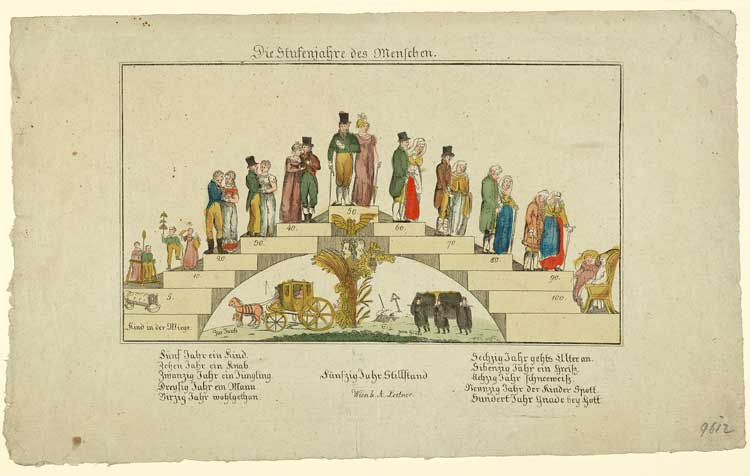 Die Stufenjahre des Menschen.
50.
40.
60.
30.
70.
20.
80.
10.
90.
5.
100.
Kind in der Wiege.
Zur Taufe
Fünf Jahr ein Kind.
Zehen Jahr ein Knab.
Zwanzig Jahr ein Jüngling.
Dreysig Jahr ein Mann.
Virzig Jahr wohlgethan.
Fünfzig Jahr Stillstand
Wien b. A. Leitner.
Sechzig Jahr gehts Alter an.
Sibenzig Jahr ein Greiß.
Achzig Jahr schneeweiß.
Neunzig Jahr der Kinder Spott.
Hundert Jahr Gnade bey Gott.
9612